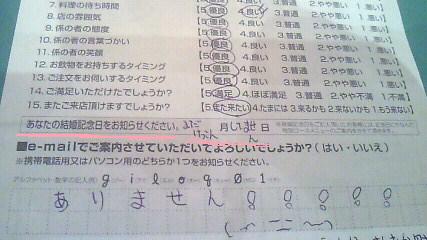 7. 料理の待ち時間 【5.優良 4.良い 3.普通 2.やや悪い 1.悪い】
8. 店の雰囲気 【5.優良 4.良い 3.普通 2.やや悪い 1.悪い】
9. 係の者の態度 【5.優良 4.良い 3.普通 2.やや悪い 1.悪い】
10. 係の者の言葉づかい 【5.優良 4.良い 3.普通 2.やや悪い 1.悪い】
11. 係の者の笑顔 【5.優良 4.良い 3.普通 2.やや悪い 1.悪い】
12. お飲物をお持ちするタイミング 【5.優良 4.良い 3.普通 2.やや悪い 1.悪い】
13. ご注文をお伺いするタイミング 【5.優良 4.良い 3.普通 2.やや悪い 1.悪い】
14. ご満足いただけたでしょうか? 【5.満足 4.ほぼ満足 3.普通 2.やや不満 1.不満】
15. またご来店頂けますでしょうか? 【5.また来たい 4.たまには 3.来るかも 2.来ないかも 1.もう来ない】
あなたの結婚記念日をお知らせください。まだ けっこん 月していませ日 ん
■e-mailでご案内させていただいてよろしいでしょうか?(はい・いいえ)
※携帯電話用又はパソコン用のどちらか1つをお知らせください。
アルファベット・数字の記入例)
ありません